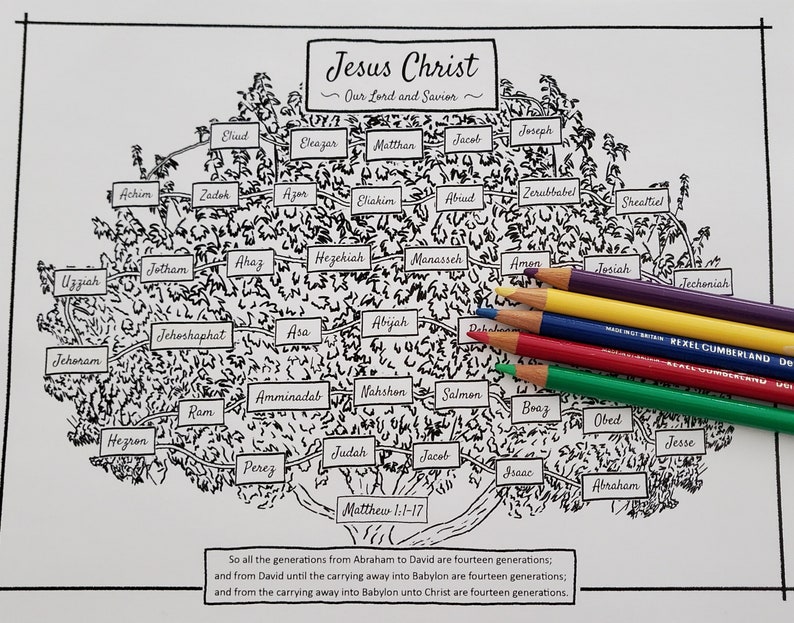 Jesus Christ
Our Lord and Savior
Eliud Eleazar Matthan Jacob Joseph
Achim Zadok Azor Eliakim Abiud Zerubbabel Shealtiel
Uzziah Jotham Ahaz Hezekiah Manasseh Amon Josiah Jechoniah
Jehoram Jehoshaphat Asa Abijah Rehoboam
MADE IN GT BRITAIN REXEL CUMBERLAND De
MADE IN GT BRITAIN REXEL CUMBERLAND Der
Ram Amminadab Nahshon Salmon Boaz Obed Jesse
Hezron Perez Judah Jacob Isaac Abraham
Matthew 1:1-17
So all the generations from Abraham to David are fourteen generations;
and from David until the carrying away into Babylon are fourteen generations;
and from the carrying away into Babylon unto Christ are fourteen generations.